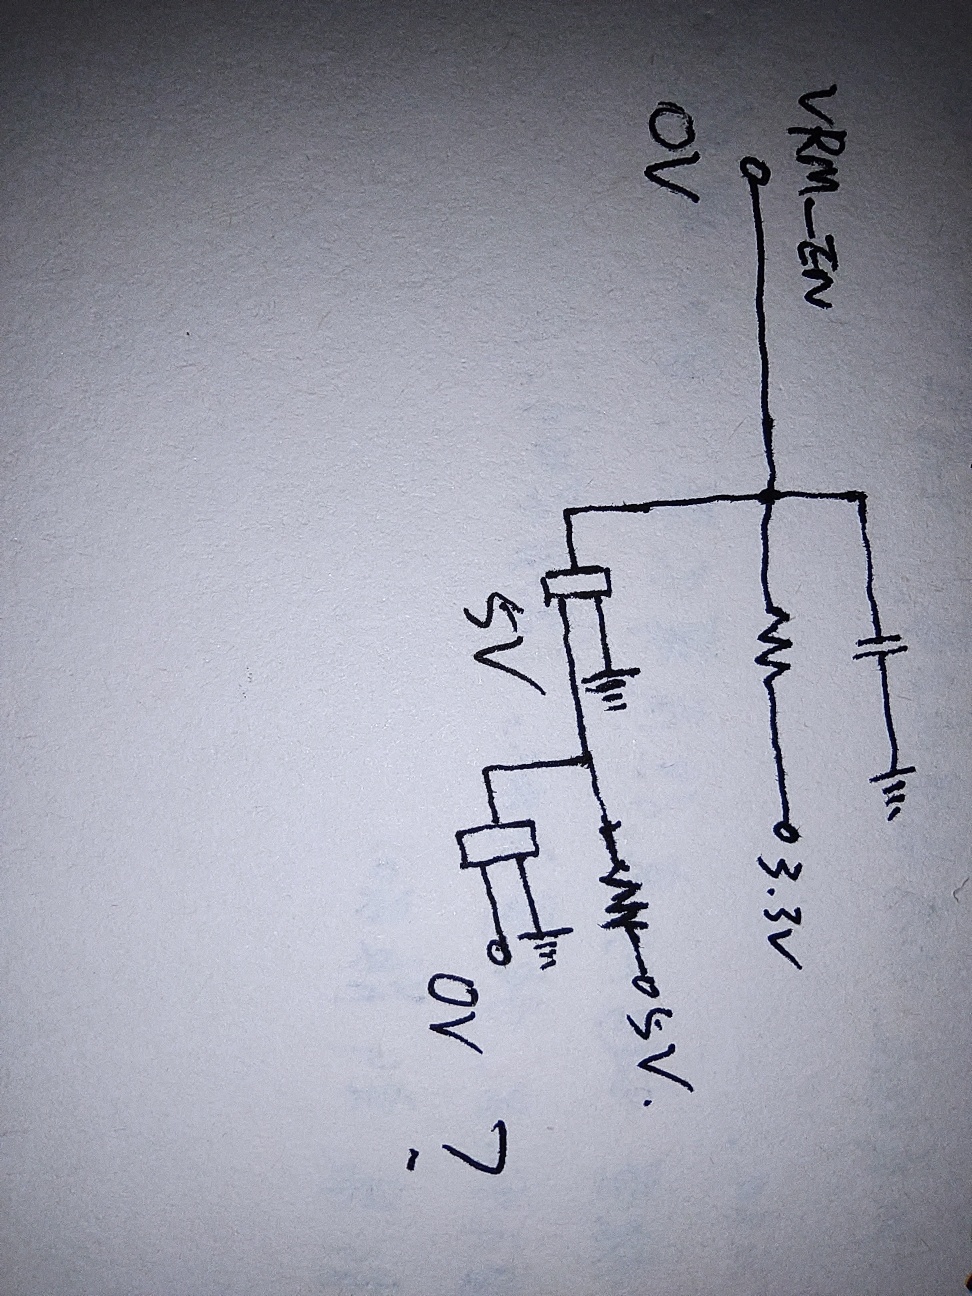 VRM_EN
0V
3.3V
5V.
5V
0V ?